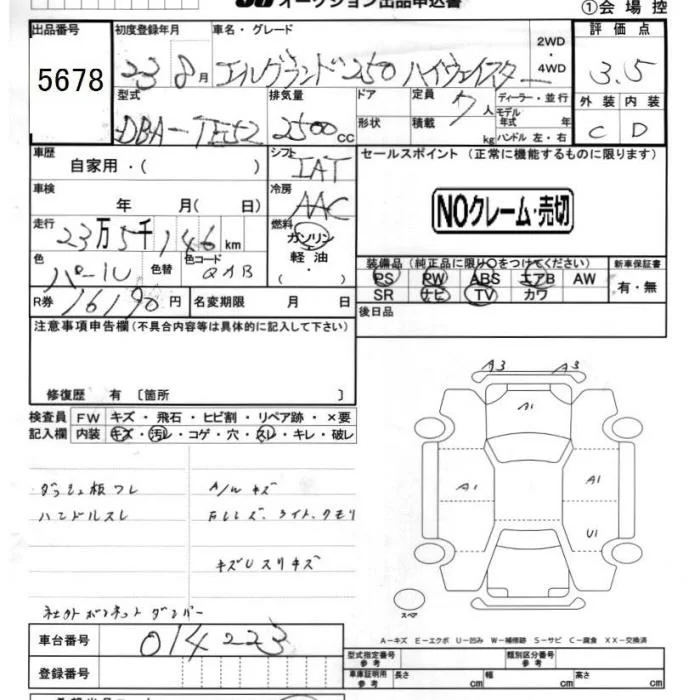 オークション出品申込書
①会場控
出品番号
5678
初度登録年月
23 8月
車名・グレード
エルグランド250 ハイウェイスター
2WD
・
4WD
評価点
3.5
型式
DBA-TE52
排気量
2500cc
ドア
形状
定員
7人
積載
kg
ディーラー・並行
モデル
年式 年
ハンドル 左・右
外装
C
内装
D
車歴
自家用・( )
シフト
IAT
セールスポイント (正常に機能するものに限ります)
NOクレーム・売切
車検
年 月( 日)
冷房
AAC
走行
23万5千146km
燃料
ガソリン
軽油
( ・ )
色
パール
色替
色コード
QAB
装備品(純正品に限り○をつけてください)
PS PW ABS エアB AW
SR ナビ TV カワ
新車保証書
有・無
R券
16190円
名変期限 月 日
後日品
注意事項申告欄(不具合内容等は具体的に記入して下さい)
修復歴 有 〔箇所 〕
検査員
記入欄
FW キズ・飛石・ヒビ割・リペア跡・×要
内装 キズ・汚レ・コゲ・穴・スレ・キレ・破レ
ダッシュ板ワレ
ハンドルスレ
A/Wキズ
ライト、クモリ
キズUスリキズ
社外ボンネットダンパー
A3 A3
A1
A1 A1
U1
スペア
A-キズ E-エクボ U-凹み W-補修跡 S-サビ C-腐食 XX-交換済
車台番号
014223
登録番号
型式指定番号
参考
類別区分番号
参考
車庫証明用
参考
長さ cm 幅 cm 高さ cm